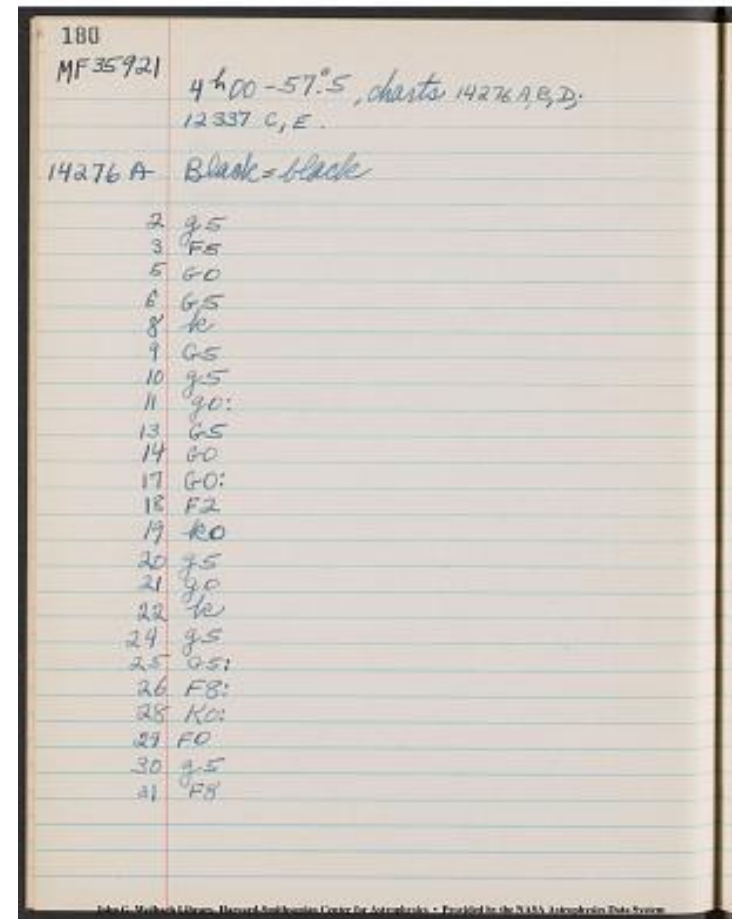 180
MF 35921
4h00 -57°.5, charts 14276 A, B, D;
12337 C, E.
14276 A Black = black
2 g5
3 F5
5 G0
6 G5
8 k
9 G5
10 g5
11 g0:
13 G5
14 G0
17 G0:
18 F2
19 k0
20 g5
21 g0
22 k
24 g5
25 G5:
26 F8:
28 K0:
29 F0
30 g5
31 F8
John G. Wolbach Library, Harvard-Smithsonian Center for Astrophysics • Provided by the NASA Astrophysics Data System